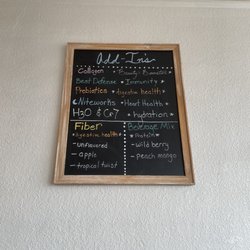 Add-In's
Collagen * Beauty Booster *
Best Defense * Immunity *
Prebiotics * digestive health *
Niteworks * Heart Health *
H3O & Cr7 * hydration *
Fiber
* digestive health *
- unflavored
- apple
- tropical twist
Beverage Mix
* Protein *
- wild berry
- peach mango